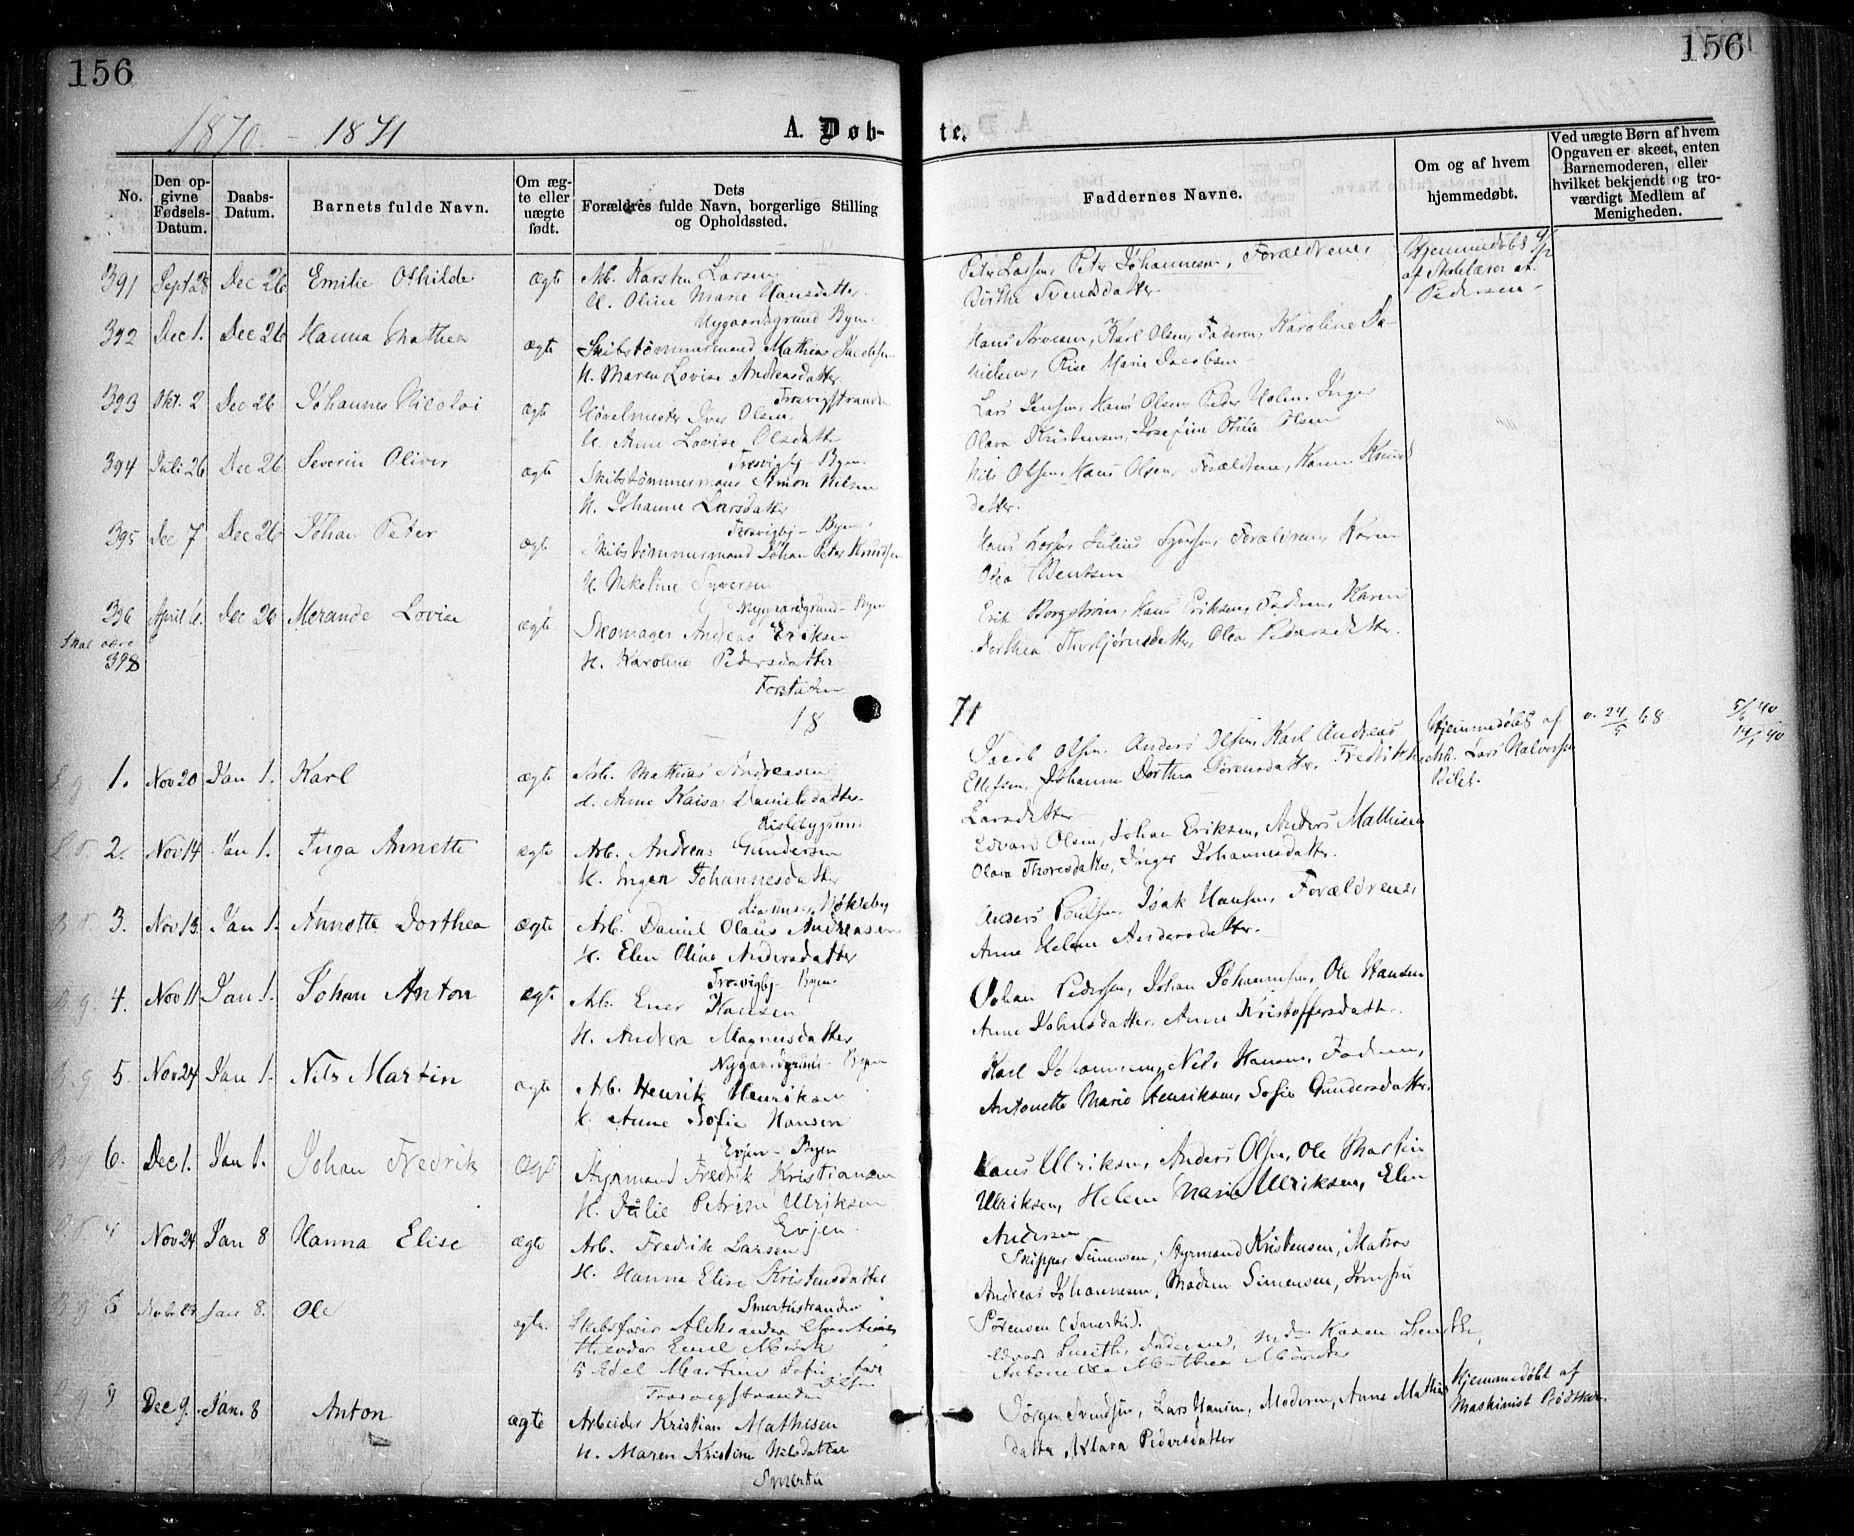 156
156
1870 - 1871
A. Døb-
te.
No.
Den op-
givne
Fødsels-
Datum.
Daabs-
Datum.
Barnets fulde Navn.
Om æg-
te eller
uægte
født.
Dets
Forældres fulde Navn, borgerlige Stilling
og Opholdssted.
Faddernes Navne.
Om og af hvem
hjemmedøbt.
Ved uægte Børn af hvem
Opgaven er skeet, enten
Barnemoderen, eller
hvilket bekjendt og tro-
værdigt Medlem af
Menigheden.
391 Sept 28 Dec 26 Emilie Othilde ægte Arb. Karsten Larsen
H. Oline Marie Hansdatter
Nygaardsgrund Byen.
Peter Larsen, Peter Johannesen, Forældrene,
Birthe Svendsdatter.
Hjemmedøbt
Pedersen
392 Dec 1. Dec 26 Hanna Mathea ægte Skibstømmermand Mathias Jacobsen
H. Maren Lovise Andreasdatter
Trosvigstranden
Hans Karl Olsen, Faderen, Karoline Da-
nielsen, Marie Jacobsen
393 Okt. 2 Dec 26 Johannes Nicolai ægte Høvelmester Iver Olsen
H. Anne Lovise Olsdatter
Trosvigbj. Byen
Lars Jensen, Hans Olsen, Peder Holm, Inger
Olava Kristensen, Josefine Otilie Olsen
394 Juli 26 Dec 26 Severin Oliver ægte Skibstømmermand Simon Nilsen
H. Johanne Larsdatter
Trosvigbj - Byen,
Nils Olsen, Hans Olsen, Forældrene, Karen Knuds
datter.
395 Dec 7 Dec 26 Johan Peter ægte Skibstømmermand Johan Peter Knudsen
H. Nikoline Syversen
Nygaardsgrund - Byen
Hans Larsen, Julius Syversen, Forældrene, Karen
Olea Bentsen
396 April 6. Dec 26 Merande Lovise ægte Skomager Andreas Eriksen
Skal være
398
H. Karoline Pedersdatter
Forstaden
Erik Borgstrøm, Hans Eriksen, Faderen, Karen
Dorthea Thorbjørnsdatter, Olea Pedersdatter.
18 71
1. Nov 20 Jan 1. Karl ægte Arb. Mathias Andreasen
H. Anne Kaisa Danielsdatter
Kislebygrund
Jacob Olsen, Anders Olsen, Karl Andreas
Ellefsen, Johanne Dorthea Sørensdatter, Fredrikke
Larsdatter
Hjemmedøbt af
Arb. Lars Halvorsen
Bilet.
v. 24/5 68
5/6 40
14/1 40
2. Nov 14 Jan 1. Inga Annette ægte Arb. Andreas Gundersen
H. Ingen Johannesdatter
Edvard Olsen, Johan Eriksen, Anders Mathisen
Olava Thoresdatter, Inger Johannesdatter.
3. Nov 13 Jan 1. Annette Dorthea ægte Arb. Daniel Olaus Andreasen
H. Elen Oline Andersdatter
Trosvigbj - Byen
Anders Poulsen, Isak Hansen, Forældrene
Anne Helene Andersdatter.
4. Nov 11 Jan 1. Johan Anton ægte Arb. Ener Hansen
H. Andrea Magnusdatter
Nygaardsgrund - Byen
Johan Pedersen, Johan Johannesen, Ole Hansen
Anne Johnsdatter, Anne Kristoffersdatter
5. Nov 24 Jan 1. Nils Martin ægte Arb. Henrik Henriksen
H. Anne Sofie Hansen
Evjen - Byen
Karl Johannesen, Nils Hansen, Faderen,
Antonette Marie Henriksen, Sofie Gundersdatter.
6. Dec 1. Jan 1. Johan Fredrik ægte Styrmand Fredrik Kristiansen
H. Julie Petrine Ulriksen
Evjen.
Hans Ulriksen, Anders Olsen, Ole Martin
Ulriksen, Helene Marie Ulriksen, Elen
Andersen
Nov 24 Jan 8 Hanna Elise ægte Arb. Fredrik Larsen
H. Hanna Elise Kristensdatter
Smertustranden
Skipper Simensen, Styrmand Kristensen, Matros
Andreas Johannesen, Madam Simensen, Jomfru
Sørensen
Jan 8. Ole ægte Skibsfører Aleksander
Emil
Edel Martine Sofie
Trosvigstranden
Faderen, Karen
Antonette Mathea
9 Dec 9. Jan. 8 Anton ægte Arbeider Kristian Mathisen
H. Maren Kristine Nilsdatter
Smertu
Jørgen Svendsen, Lars Hansen, Moderen, Anne Mathis
datter, Klara Pedersdatter
Hjemmedøbt af
Maskinist Bødtker.